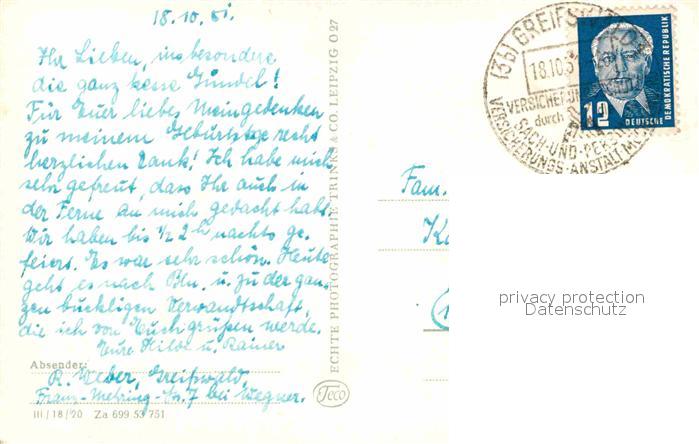 18.10.51.
Ihr Lieben, insbesondere
die ganz kesse Gundel!
Für Euer liebes Meingedenken
zu meinem Geburtstge recht
herzlichen Dank! Ich habe mich
sehr gefreut, dass Ihr auch in
der Ferne an mich gedacht habt.
Wir haben bis ½ 2h nachts ge-
feiert. Es war sehr schön. Heute
geht es nach Bln. u. zu der gan-
zen buckligen Verwandtschaft,
die ich von Euch grüßen werde.
Eure Hilde u. Rainer
Absender:
R. Weber, Greifswald,
Franz-Mehring-Str. 7 bei Wegner.
III/18/20 Za 699 53 751
ECHTE PHOTOGRAPHIE TRINKS & CO. LEIPZIG O 27
Teco
(3b) GREIFSW
18.10.5
VERSICHER
durch
SACH-UND-PER
VERSICHERUNGS-ANSTALT
12
DEUTSCHE
DEMOKRATISCHE REPUBLIK
Fam.
privacy protection
Datenschutz